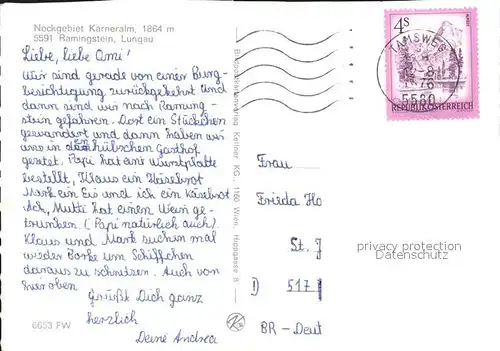 Nockgebiet Karneralm, 1864 m
5591 Ramingstein, Lungau
Liebe, liebe Omi!
Wir sind gerade von einer Burg-
besichtigung zurückgekehrt und
dann sind wir nach Ramung-
stein gefahren. Dort ein Stückchen
gewandert und dann haben wir
uns in hübschen Gasthof
gesetzt. Papi hat ane Wurstplatte
bestellt, Klaus ein Käsebrot
Mark ein Eis und ich ein Käsebrot
Ach, Mutti hat einen Wein ge-
trunken. (Papi natürlich auch).
Klaus und Mark suchen mal
wieder Borke um Schiffchen
daraus zu schnitzen. Auch von
hier oben
Grüßt Dich ganz
herzlich
Deine Andrea
6653 FW
Kellner KG., 1160 Wien,
4 S
REPUBLIK ÖSTERREICH
TAMSWEG
5580
Frau
Frieda Ho
St. J
D 517
BR - Deut
privacy protection
Datenschutz